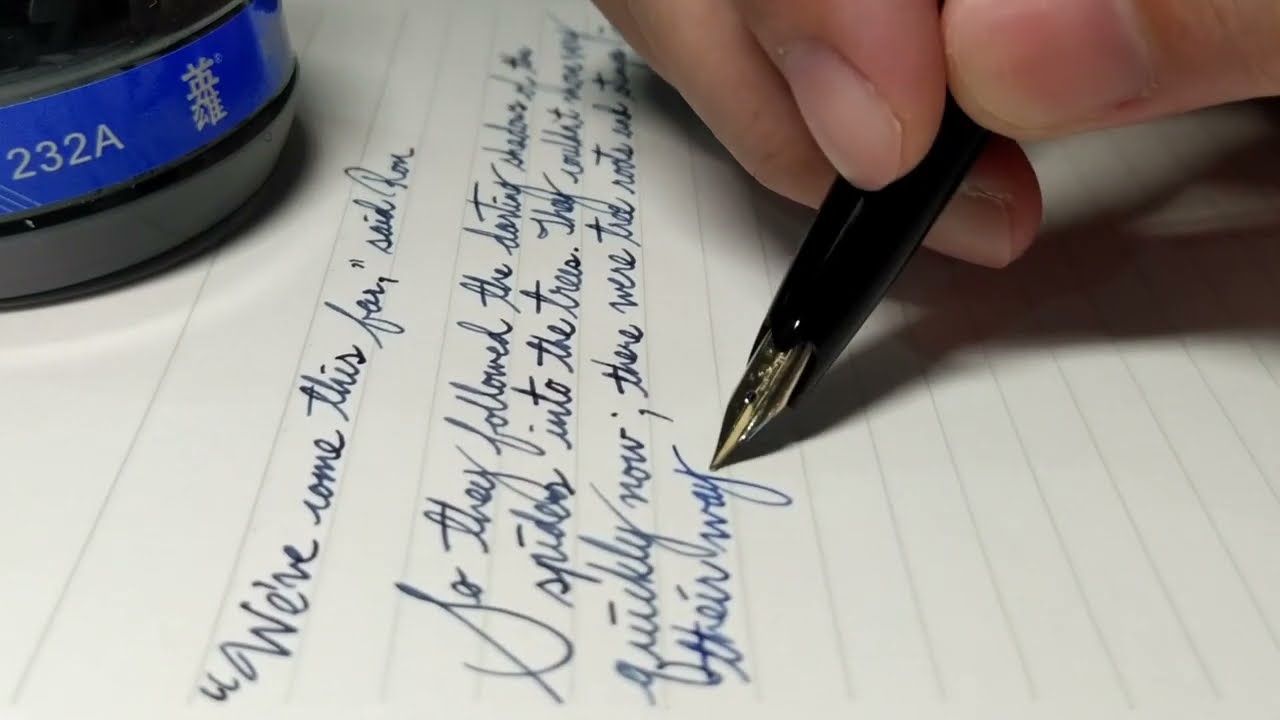 英雄®
232A
"We've come this far," said Ron
So they followed the darting shadows of the
spiders into the trees. They couldn't move very
quickly now; there were tree roots and stumps in
their way